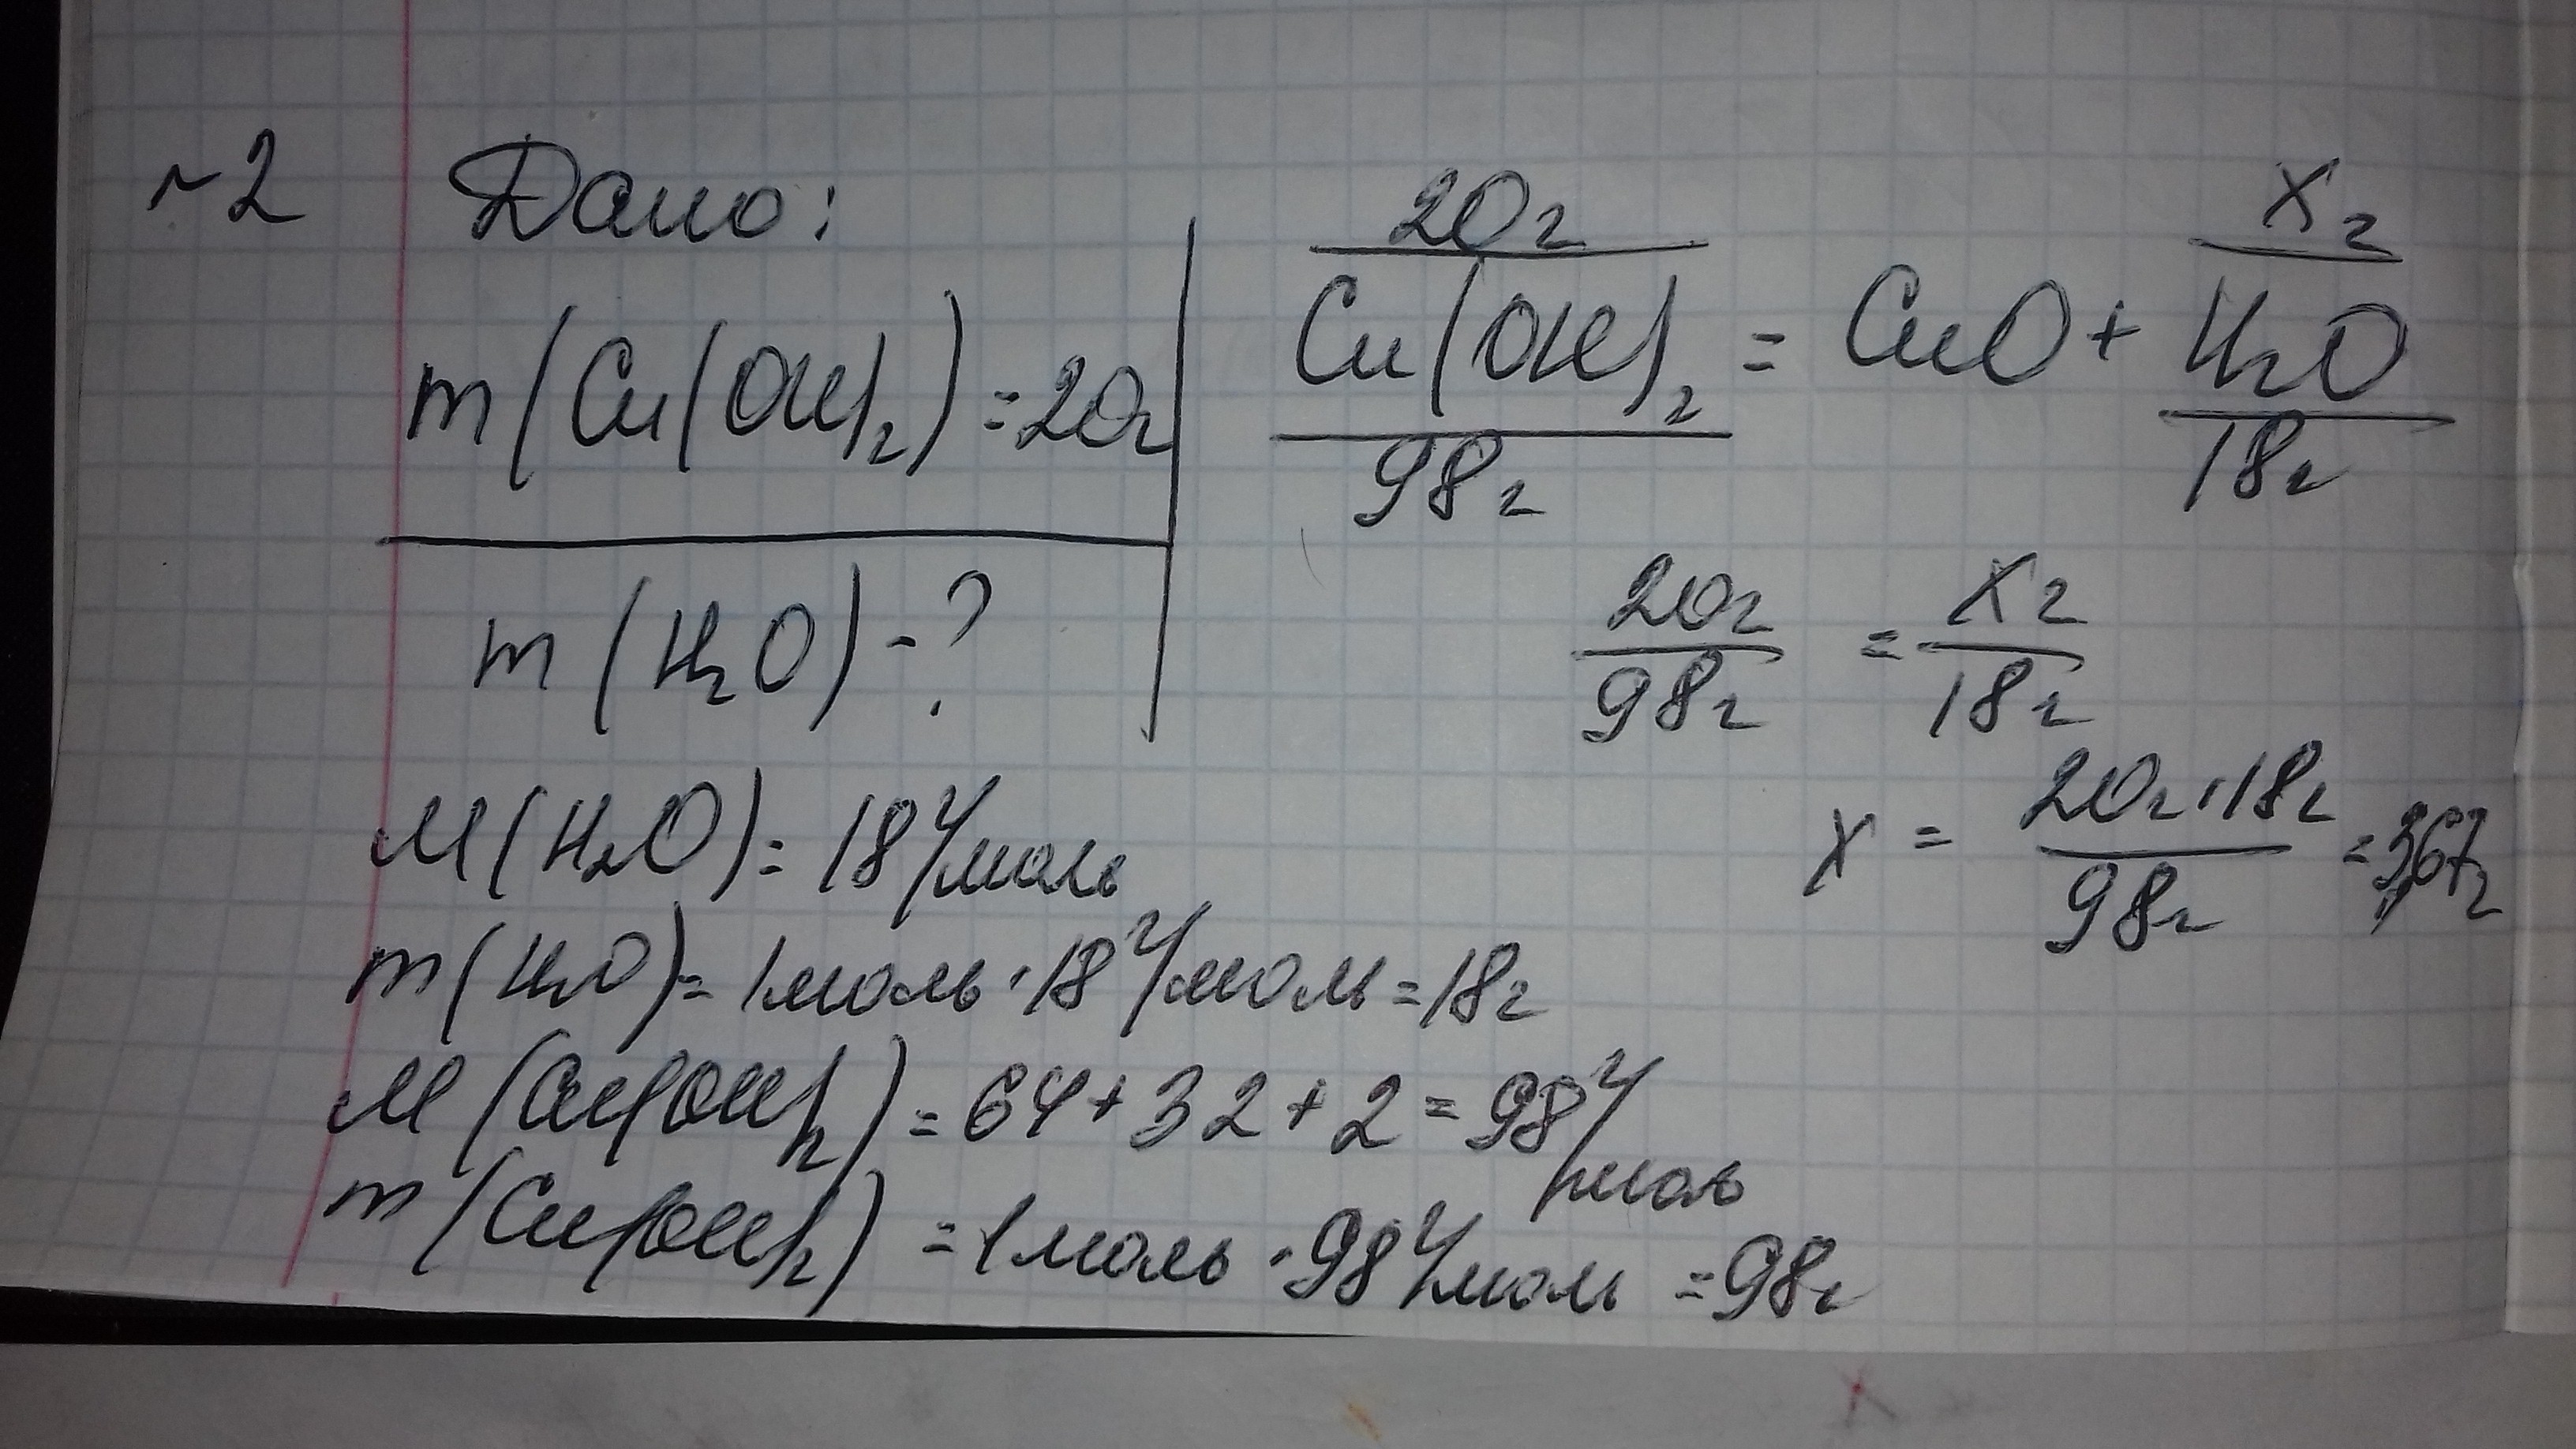 №2 Дано:
m(Cu(OH)₂)=20г
m(H₂O)-?
20г x г
Cu(OH)₂ = CuO + H₂O
98г 18г
20г/98г = x г/18г
x = 20г·18г/98г = 3,67г
M(H₂O)= 18 г/моль
m(H₂O)= 1моль·18 г/моль=18г
M(Cu(OH)₂)= 64+32+2=98 г/моль
m(Cu(OH)₂) =1моль·98 г/моль =98г